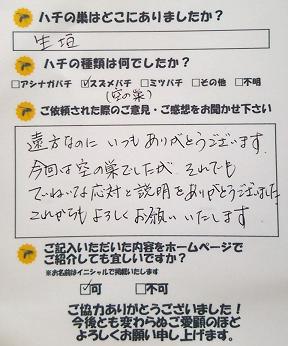 ハチの巣はどこにありましたか?
生垣
ハチの種類は何でしたか?
□アシナガバチ ☑スズメバチ □ミツバチ □その他 □不明
(空の巣)
ご依頼された際のご意見・ご感想をお聞かせ下さい
遠方なのに いつも ありがとうございます
今回は空の巣でしたが、それでも
ていねいな応対と説明をありがとうございました
これからも よろしくお願いいたします
ご記入いただいた内容をホームページで
ご紹介しても宜しいですか?
※お名前はイニシャルで掲載いたします
☑可 □不可
ご協力ありがとうございました!
今後とも変わらぬご愛顧のほど
よろしくお願い申し上げます。